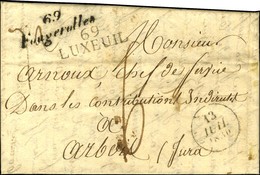 69
Fougerolles
69
LUXEUIL
Monsieur
Arnoux, Chef de service
Dans les Contributions Indirectes
à
Arbois
(Jura)
13
JUIL
1830